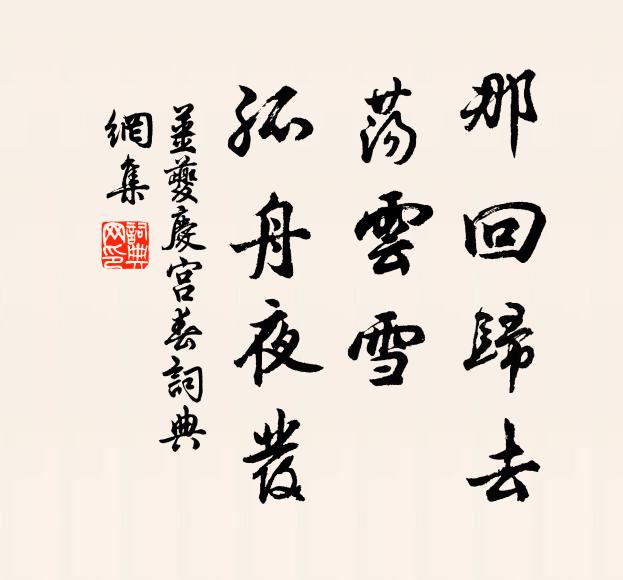 那回歸去
蕩雲雪
孤舟夜發
姜夔慶宮春詞典
網集
詞典
網印